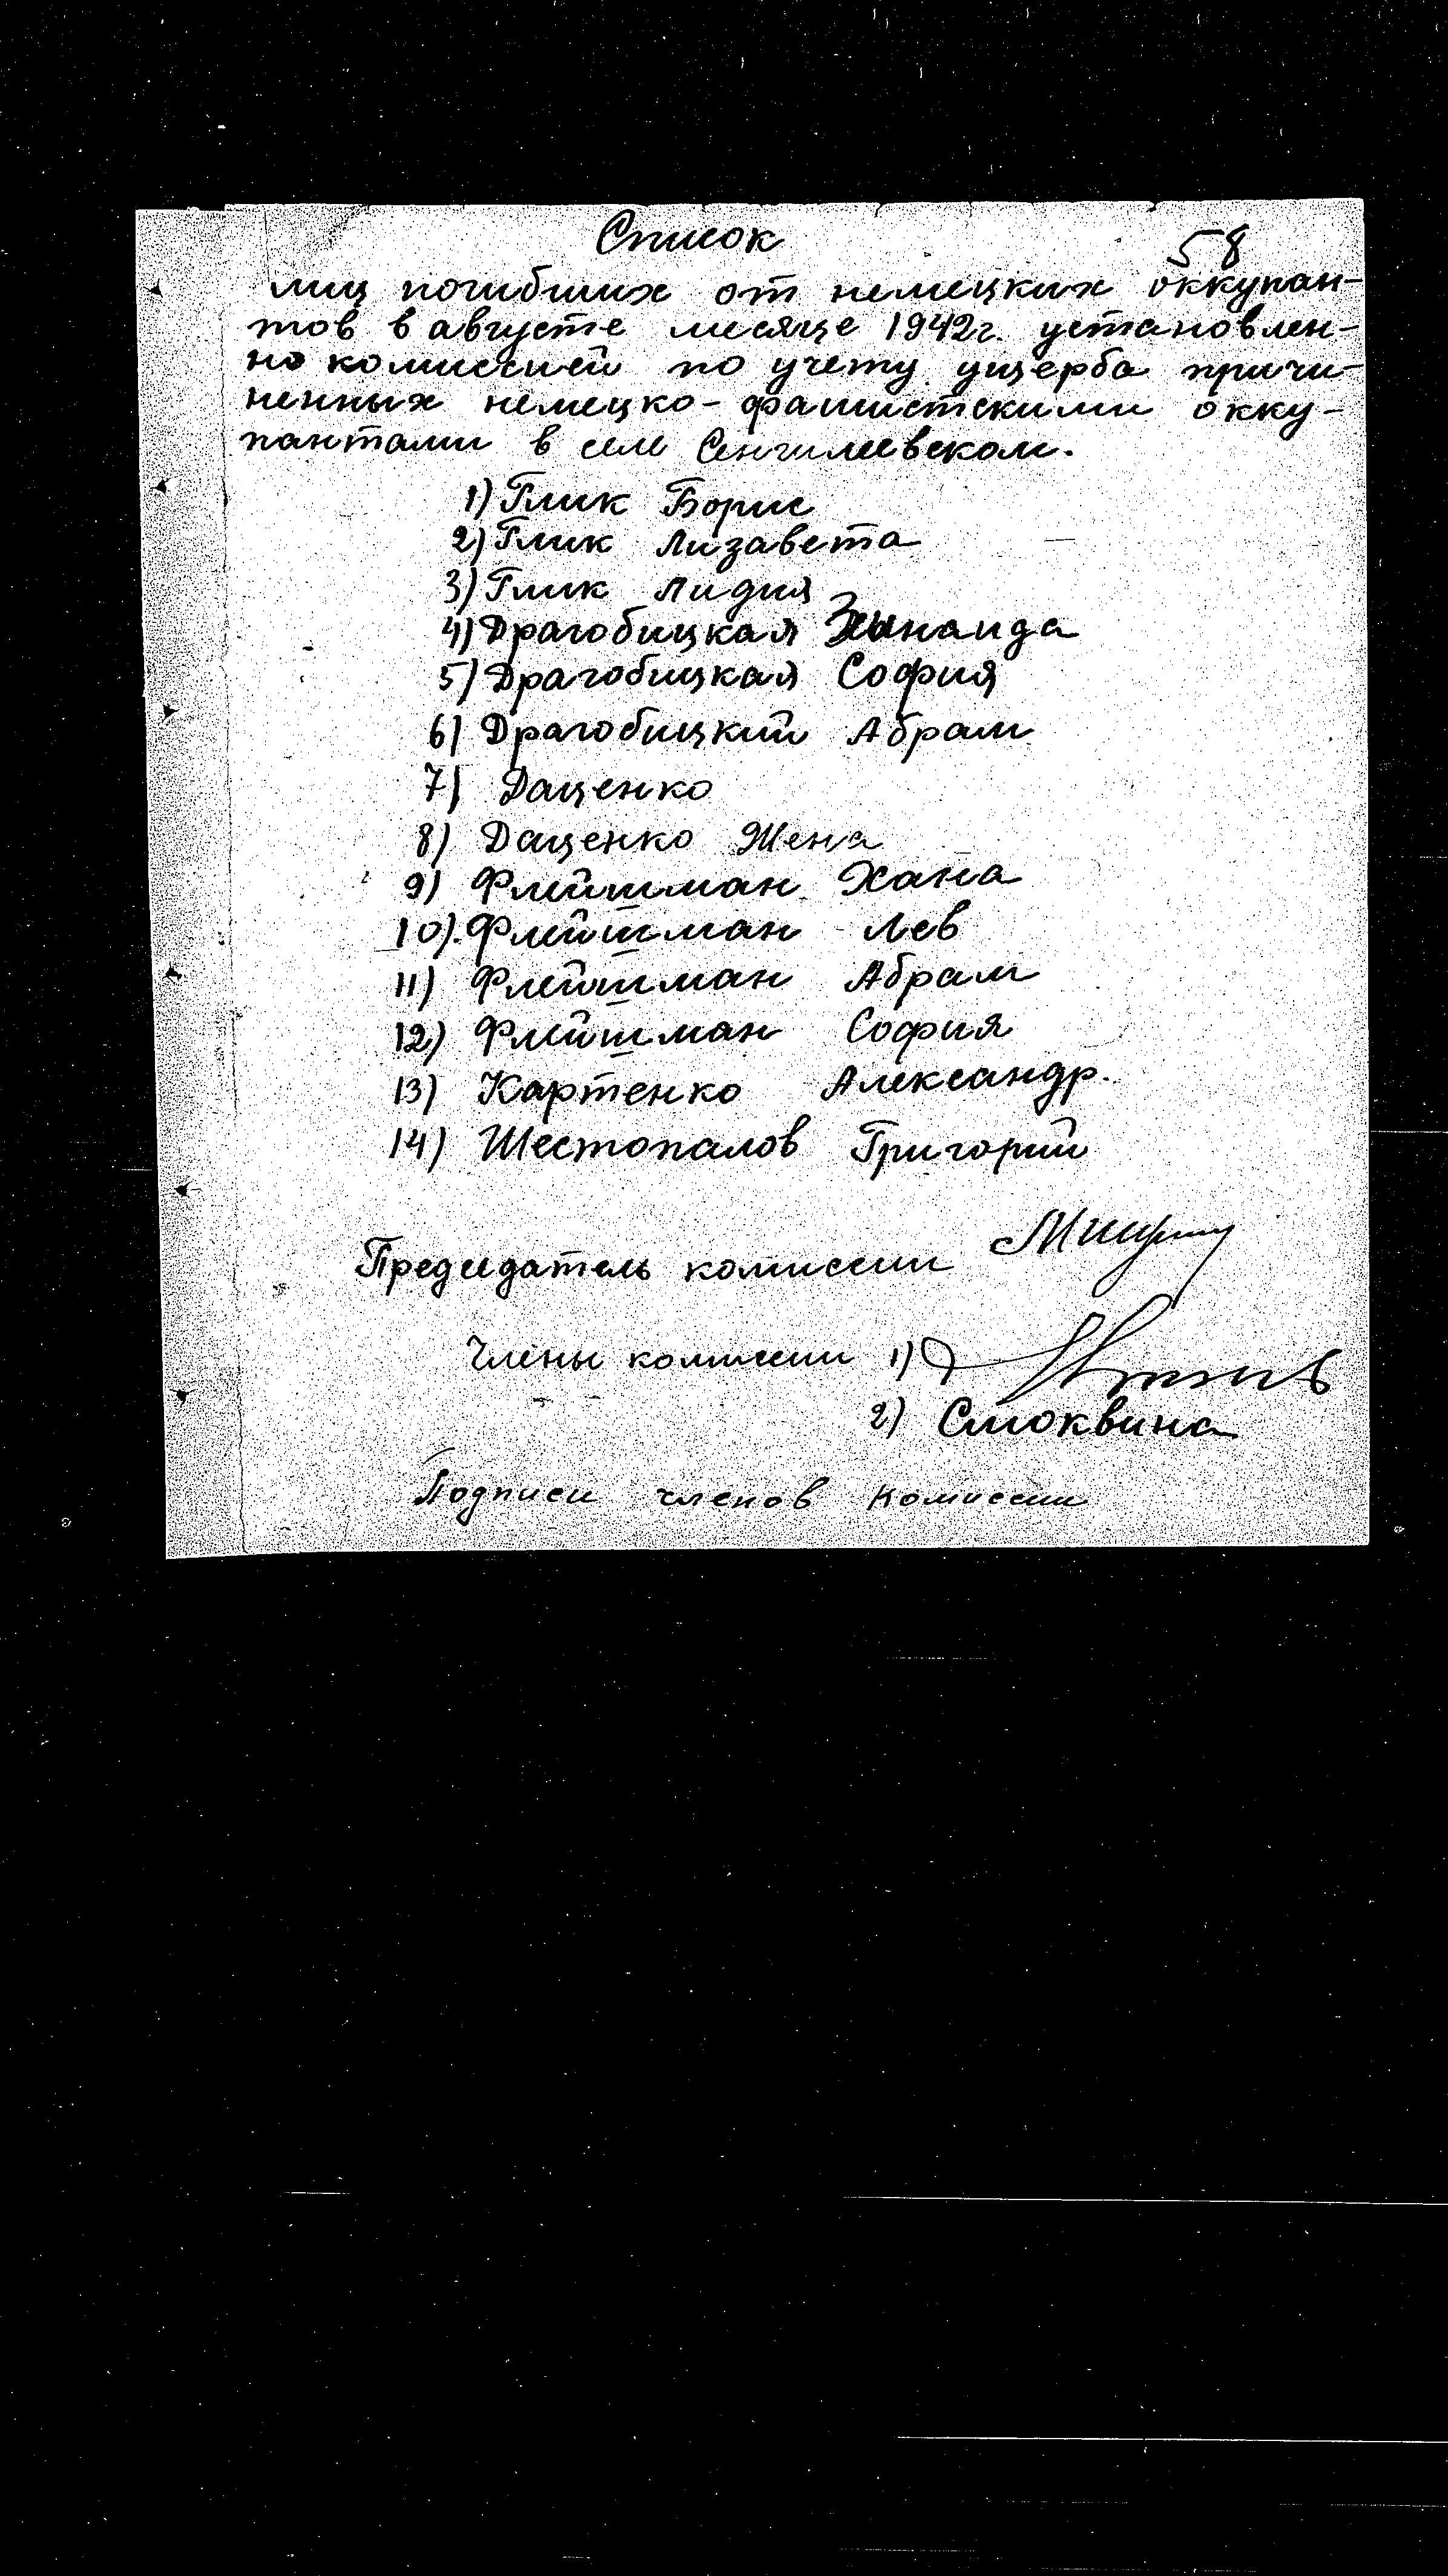 Список
58
лиц погибших от немецких оккупан-
тов в августе месяце 1942г. установлен-
но комиссией по учету ущерба причи-
ненных немецко-фашистскими окку-
пантами в селе Сенгилеевском.
1) Глик Борис
2) Глик Лизавета
3) Глик Лидия
4) Драгобицкая Зинаида
5) Драгобицкая София
6) Драгобицкий Абрам
7) Даценко
8) Даценко Жена
9) Флейшман Хана
10). Флейшман Лев
11) Флейшман Абрам
12) Флейшман София
13) Картенко Александр.
14) Шестопалов Григорий
Председатель комиссии
Члены комиссии 1)
2) Смоквина
Подписи членов комиссии